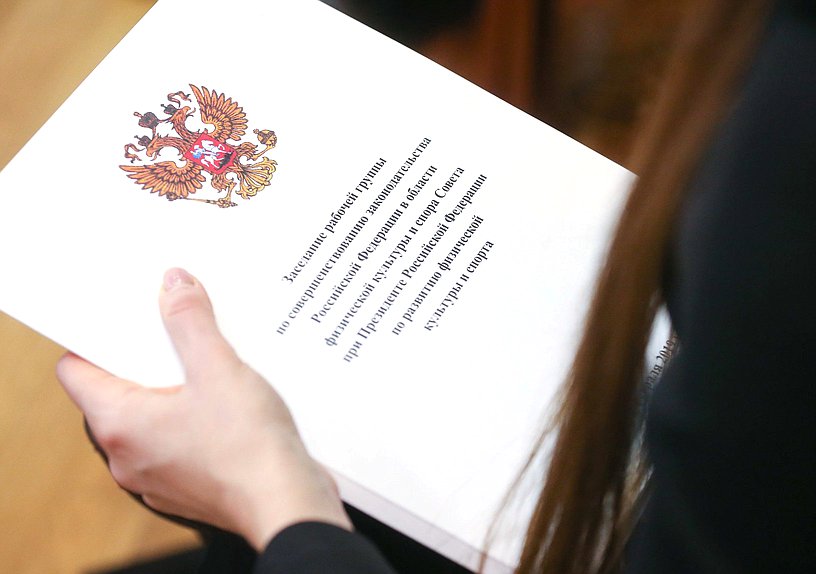 Заседание рабочей группы
по совершенствованию законодательства
Российской Федерации в области
физической культуры и спора Совета
при Президенте Российской Федерации
по развитию физической
культуры и спорта